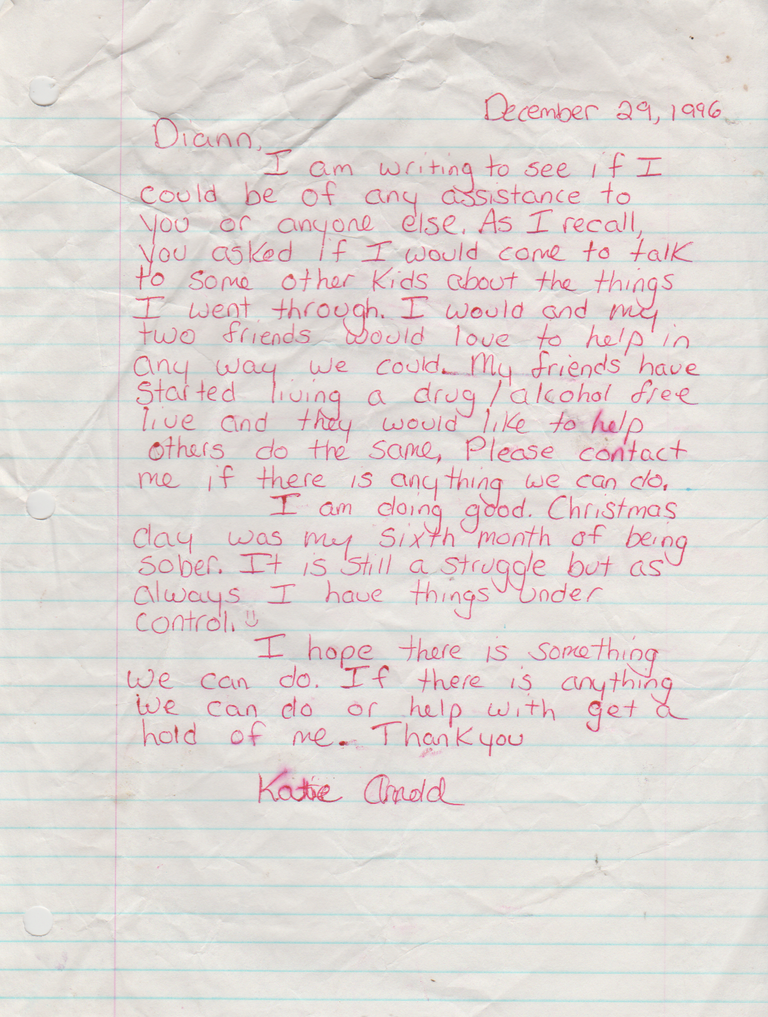 December 29, 1996
Diann,
I am writing to see if I
could be of any assistance to
you or anyone else. As I recall,
you asked if I would come to talk
to some other kids about the things
I went through. I would and my
two friends would love to help in
any way we could. My friends have
started living a drug/alcohol free
live and they would like to help
others do the same, Please contact
me if there is anything we can do.
I am doing good. Christmas
day was my sixth month of being
sober. It is still a struggle but as
always I have things under
control. ☺
I hope there is something
we can do. If there is anything
we can do or help with get a
hold of me. Thankyou
Katie Arnold